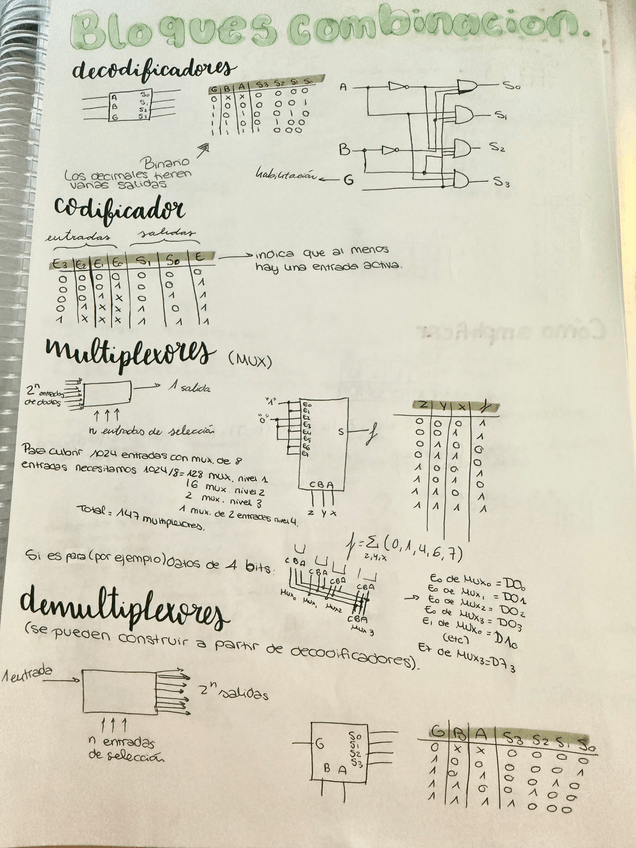 Bloques combinacion.
decodificadores
A S0
B S1
G S2
G B A S3 S2 S1 S0
0 x x 0 0 0 0
1 0 0 0 0 0 1
1 0 1 0 0 1 0
1 1 0 0 1 0 0
1 1 1 1 0 0 0
A S0
S1
B S2
habilitación G S3
Binario
Los decimales tienen
varias salidas
codificador
entradas salidas
E3 E2 E1 E0 S1 S0 E
0 0 0 0 0 0 0
0 0 0 1 0 0 1
0 0 1 x 0 1 1
0 1 x x 1 0 1
1 x x x 1 1 1
indica que al menos
hay una entrada activa.
multiplexores (MUX)
2^n entradas de datos
1 salida
n entradas de selección
"1"
"0"
E0
E1
E2
E3
E4
E5
E6
E7
S f
C B A
Z Y X
Z Y X f
0 0 0 1
0 0 1 1
0 1 0 0
0 1 1 0
1 0 0 1
1 0 1 0
1 1 0 1
1 1 1 1
Para cubrir 1024 entradas con mux. de 8
entradas necesitamos 1024/8=128 mux. nivel 1
16 mux nivel 2
2 mux. nivel 3
1 mux. de 2 entradas nivel 4.
Total = 147 multiplexores.
f = Σ (0,1,4,6,7)
z,y,x
Si es para (por ejemplo) datos de 4 bits:
CBA CBA CBA CBA
Mux0 Mux1 Mux2 Mux3
E0 de Mux0 = D00
E0 de Mux1 = D01
E0 de Mux2 = D02
E0 de Mux3 = D03
E1 de Mux0 = D10
(etc)
E7 de Mux3 = D73
demultiplexores
(se pueden construir a partir de decodificadores).
1 entrada
2^n salidas
n entradas
de selección
G S0
S1
S2
S3
B A
G B A S3 S2 S1 S0
0 x x 0 0 0 0
1 0 0 0 0 0 1
1 0 1 0 0 1 0
1 1 0 0 1 0 0
1 1 1 1 0 0 0